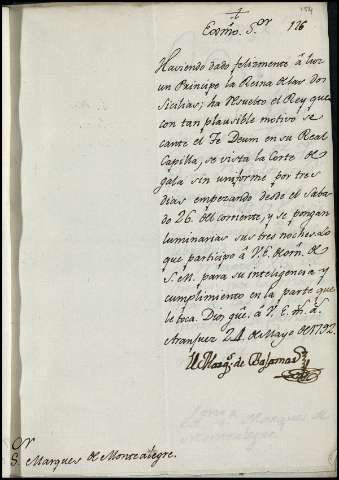 154
Exmo. S.or 126
Haviendo dado felizmente â luz
un Principe la Reina de las dos
Sicilias; ha resuelto el Rey que
con tan plausible motivo se
cante el Te Deum en su Real
Capilla, se vista la Corte de
gala sin uniforme por tres
dias empezando desde el Saba-
do 26. del corriente, y se pongan
luminarias sus tres noches. Lo
que participo â V.E. de orn. de
S.M. para su inteligencia y
cumplimiento en la parte que
le toca. Dios gûe. â V.E. m.s a.s
Aranjuez 24. de Mayo de 1792.
El Marq.s de Bajamar
S.or Marques de Montealegre.